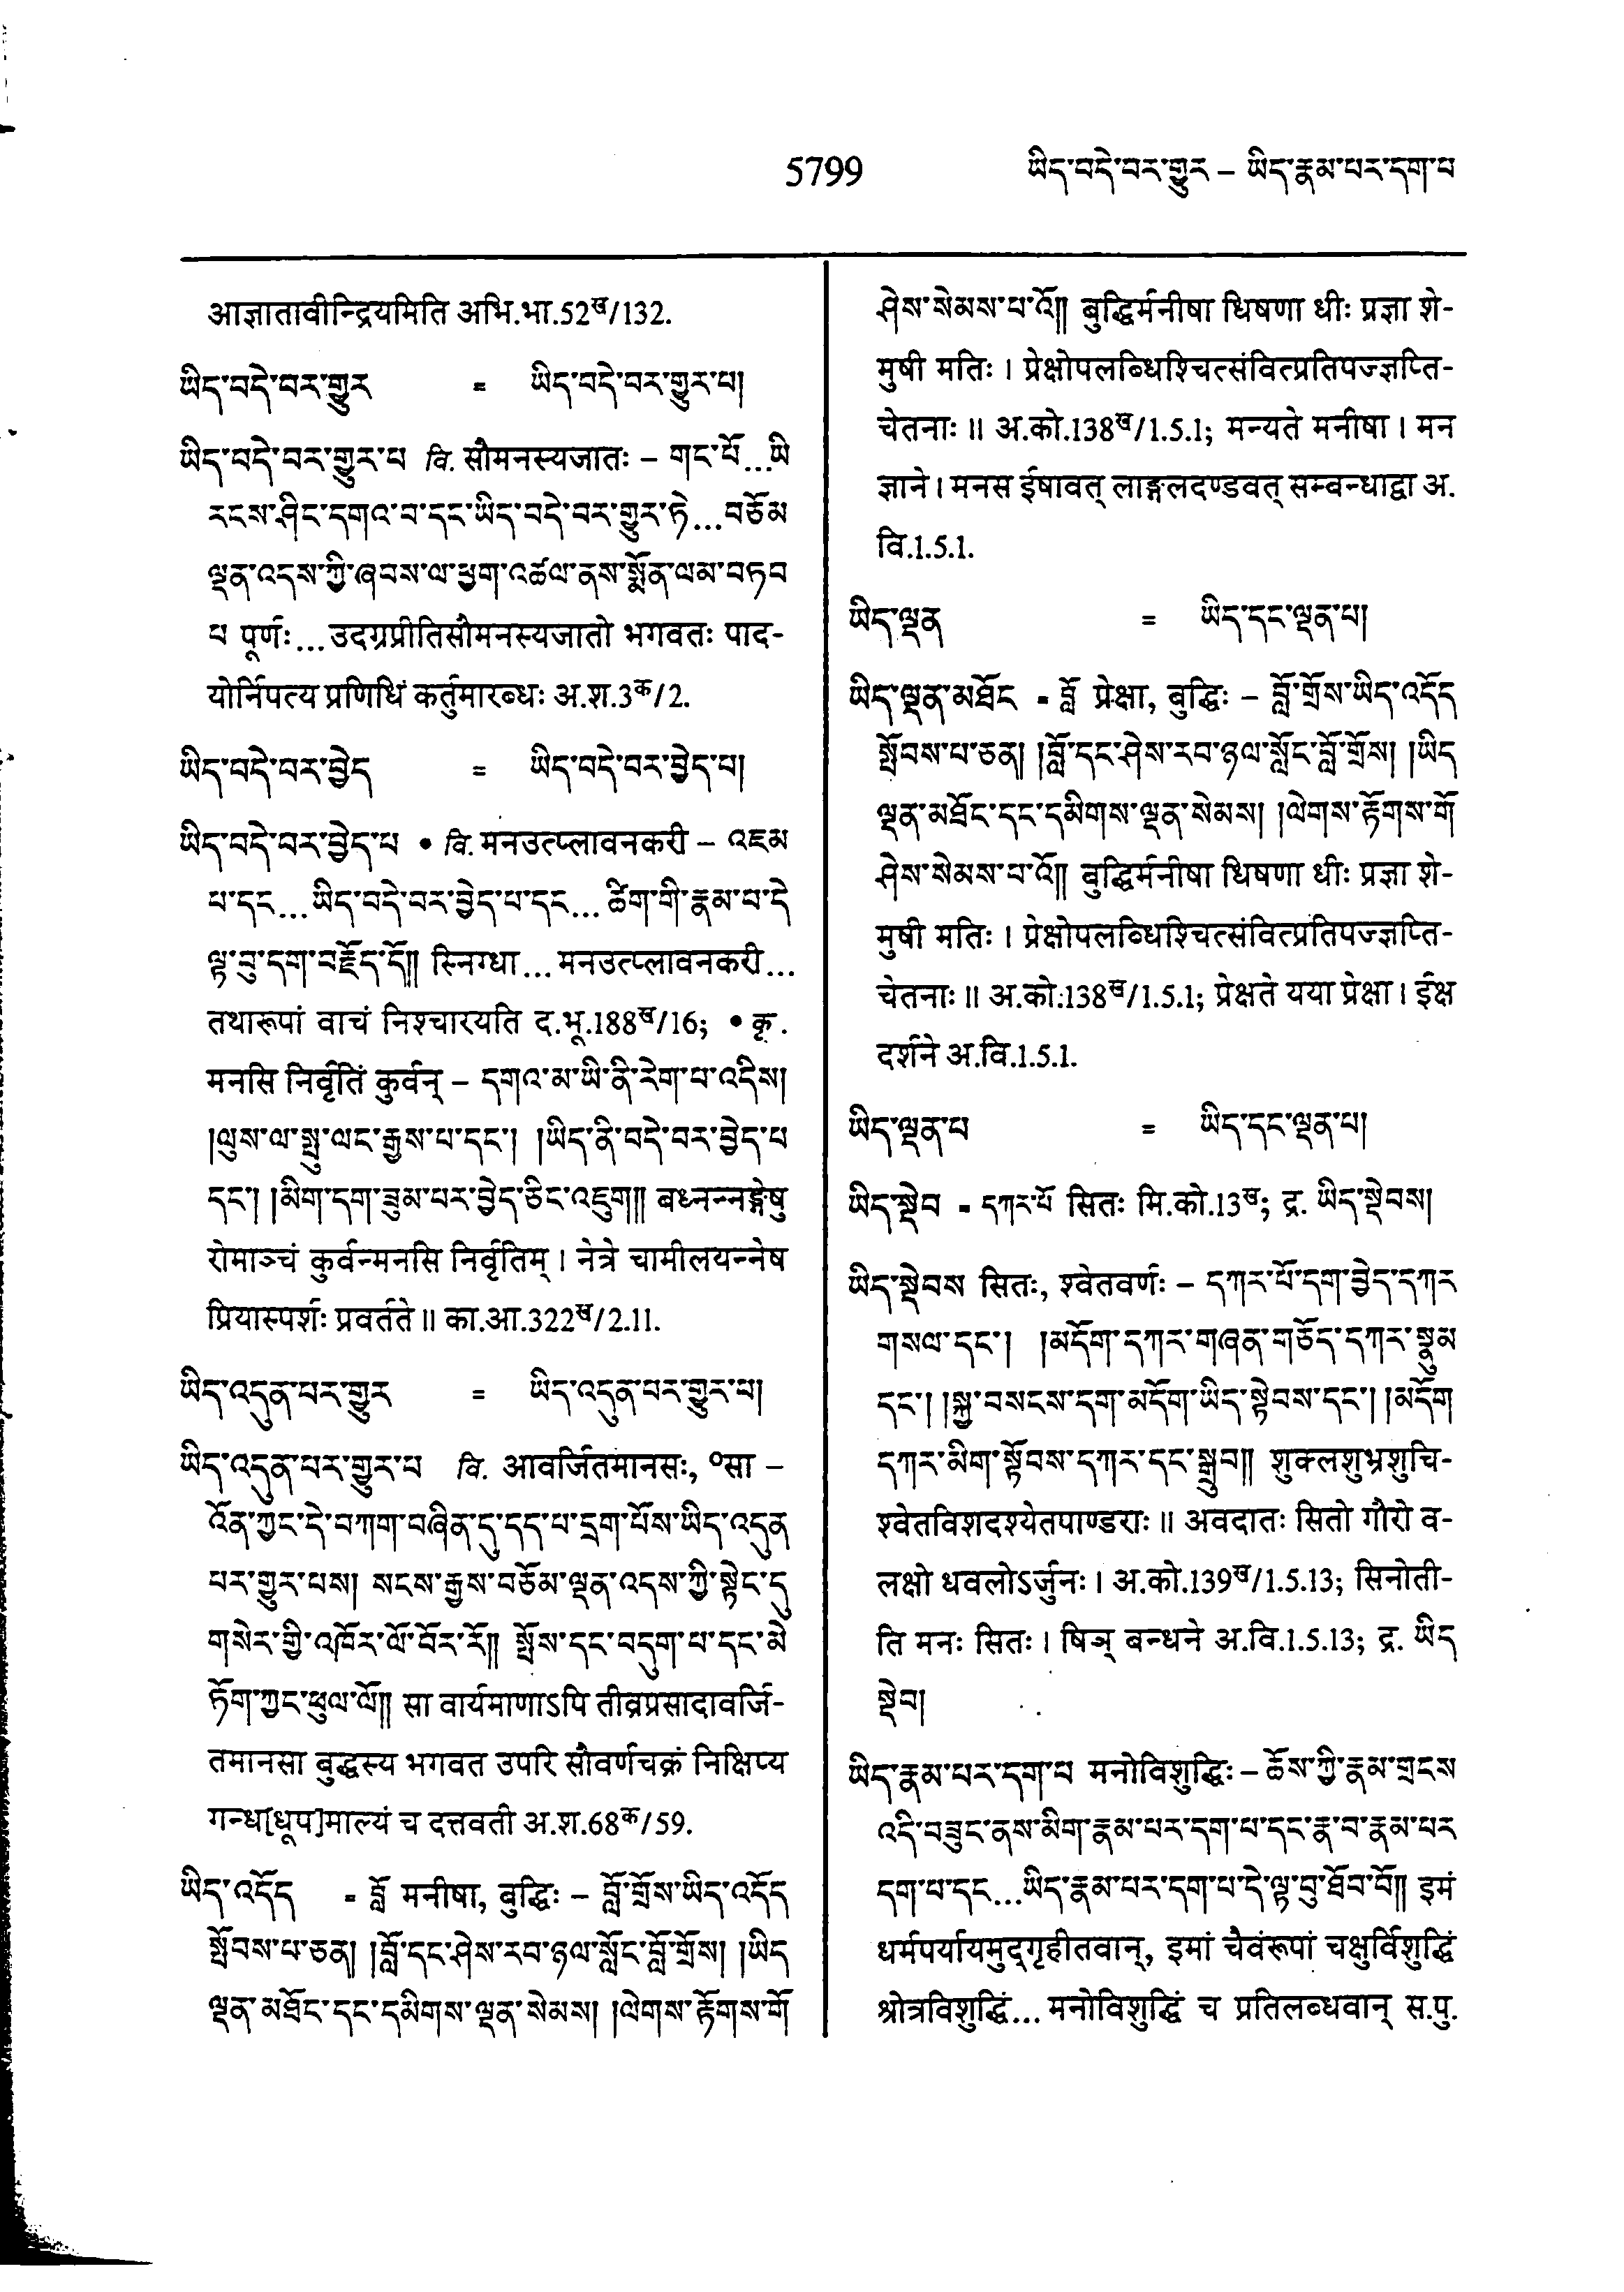 5799 ཡིད་བདེ་བར་གྱུར – ཡིད་རྣམ་པར་དག་པ
आज्ञातावीन्द्रियमिति अभि.भा.52ख/132.
ཡིད་བདེ་བར་གྱུར = ཡིད་བདེ་བར་གྱུར་པ།
ཡིད་བདེ་བར་གྱུར་པ वि. सौमनस्यजातः – གང་པོ...ཡི
རངས་ཤིང་དགའ་བ་དང་ཡིད་བདེ་བར་གྱུར་ཏེ...བཅོམ
ལྡན་འདས་ཀྱི་ཞབས་ལ་ཕྱག་འཚལ་ནས་སྨོན་ལམ་བཏབ
པ पूर्णः...उदग्रप्रीतिसौमनस्यजातो भगवतः पाद-
योर्निपत्य प्रणिधिं कर्तुमारब्धः अ.श.3क/2.
ཡིད་བདེ་བར་བྱེད = ཡིད་བདེ་བར་བྱེད་པ།
ཡིད་བདེ་བར་བྱེད་པ • वि. मनउत्प्लावनकरी – འཇམ
པ་དང...ཡིད་བདེ་བར་བྱེད་པ་དང...ཚིག་གི་རྣམ་པ་དེ
ལྟ་བུ་དག་བརྗོད་དོ༎ स्निग्धा...मनउत्प्लावनकरी...
तथारूपां वाचं निश्चारयति द.भू.188ख/16; • कृ.
मनसि निर्वृतिं कुर्वन् – དགའ་མ་ཡི་ནི་རེག་པ་འདིས།
།ལུས་ལ་སྤུ་ལང་རྒྱས་པ་དང་། །ཡིད་ནི་བདེ་བར་བྱེད་པ
དང་། །མིག་དག་ཟུམ་པར་བྱེད་ཅིང་འཇུག༎ बध्नन्नङ्गेषु
रोमाञ्चं कुर्वन्मनसि निर्वृतिम् । नेत्रे चामीलयन्नेष
प्रियास्पर्शः प्रवर्तते ॥ का.आ.322ख/2.11.
ཡིད་འདུན་པར་གྱུར = ཡིད་འདུན་པར་གྱུར་པ།
ཡིད་འདུན་པར་གྱུར་པ वि. आवर्जितमानसः, ॰सा –
འོན་ཀྱང་དེ་བཀག་བཞིན་དུ་དད་པ་དྲག་པོས་ཡིད་འདུན
པར་གྱུར་པས། སངས་རྒྱས་བཅོམ་ལྡན་འདས་ཀྱི་སྟེང་དུ
གསེར་གྱི་འཁོར་ལོ་བོར་རོ༎ སྤོས་དང་བདུག་པ་དང་མེ
ཏོག་ཀྱང་ཕུལ་ལོ༎ सा वार्यमाणाऽपि तीव्रप्रसादावर्जि-
तमानसा बुद्धस्य भगवत उपरि सौवर्णचक्रं निक्षिप्य
गन्ध[धूप]माल्यं च दत्तवती अ.श.68क/59.
ཡིད་འདོད = བློ मनीषा, बुद्धिः – བློ་གྲོས་ཡིད་འདོད
སྤོབས་པ་ཅན། །བློ་དང་ཤེས་རབ་ཉལ་སློང་བློ་གྲོས། །ཡིད
ལྡན་མཐོང་དང་དམིགས་ལྡན་སེམས། །ལེགས་རྟོགས་གོ
ཤེས་སེམས་པ་འོ༎ बुद्धिर्मनीषा धिषणा धीः प्रज्ञा शे-
मुषी मतिः । प्रेक्षोपलब्धिश्चित्संवित्प्रतिपज्ज्ञप्ति-
चेतनाः ॥ अ.को.138ख/1.5.1; मन्यते मनीषा । मन
ज्ञाने । मनस ईषावत् लाङ्गलदण्डवत् सम्बन्धाद्वा अ.
वि.1.5.1.
ཡིད་ལྡན = ཡིད་དང་ལྡན་པ།
ཡིད་ལྡན་མཐོང = བློ प्रेक्षा, बुद्धिः – བློ་གྲོས་ཡིད་འདོད
སྤོབས་པ་ཅན། །བློ་དང་ཤེས་རབ་ཉལ་སློང་བློ་གྲོས། །ཡིད
ལྡན་མཐོང་དང་དམིགས་ལྡན་སེམས། །ལེགས་རྟོགས་གོ
ཤེས་སེམས་པ་འོ༎ बुद्धिर्मनीषा धिषणा धीः प्रज्ञा शे-
मुषी मतिः । प्रेक्षोपलब्धिश्चित्संवित्प्रतिपज्ज्ञप्ति-
चेतनाः ॥ अ.को.138ख/1.5.1; प्रेक्षते यया प्रेक्षा । ईक्ष
दर्शने अ.वि.1.5.1.
ཡིད་ལྡན་པ = ཡིད་དང་ལྡན་པ།
ཡིད་སྡེབ = དཀར་པོ सितः मि.को.13ख; द्र. ཡིད་སྡེབས།
ཡིད་སྡེབས सितः, श्वेतवर्णः – དཀར་པོ་དག་བྱེད་དཀར
གསལ་དང་། །མདོག་དཀར་གཞན་གཅོད་དཀར་སྣུམ
དང་། །སྐྱ་བསངས་དག་མདོག་ཡིད་སྟེབས་དང་། །མདོག
དཀར་མིག་སྟོབས་དཀར་དང་སྒྲུབ༎ शुक्लशुभ्रशुचि-
श्वेतविशदश्येतपाण्डराः ॥ अवदातः सितो गौरो व-
लक्षो धवलोऽर्जुनः । अ.को.139ख/1.5.13; सिनोती-
ति मनः सितः । षिञ् बन्धने अ.वि.1.5.13; द्र. ཡིད
སྡེབ།
ཡིད་རྣམ་པར་དག་པ मनोविशुद्धिः – ཆོས་ཀྱི་རྣམ་གྲངས
འདི་བཟུང་ནས་མིག་རྣམ་པར་དག་པ་དང་རྣ་བ་རྣམ་པར
དག་པ་དང...ཡིད་རྣམ་པར་དག་པ་དེ་ལྟ་བུ་ཐོབ་བོ༎ इमं
धर्मपर्यायमुद्गृहीतवान्, इमां चैवंरूपां चक्षुर्विशुद्धिं
श्रोत्रविशुद्धिं...मनोविशुद्धिं च प्रतिलब्धवान् स.पु.